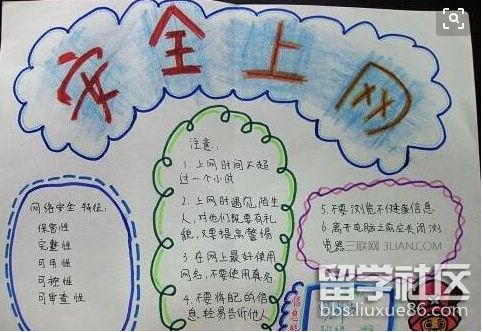 安全上网
网络安全 特征:
保密性
完整性
可用性
可控性
可审查性
注意:
1、上网时间不超
过一个小时
2、上网时遇见陌生
人,对他们既要有礼
貌,又要提高警惕
3、在网上最好使用
网名,不要使用真名
4、不要将自己的信
息轻易告诉他人
5.不要浏览不健康信息
6.离开电脑之前应关闭浏
览器
三联网 3LIAN.COM
留学社区
bbs.liuxue86.com